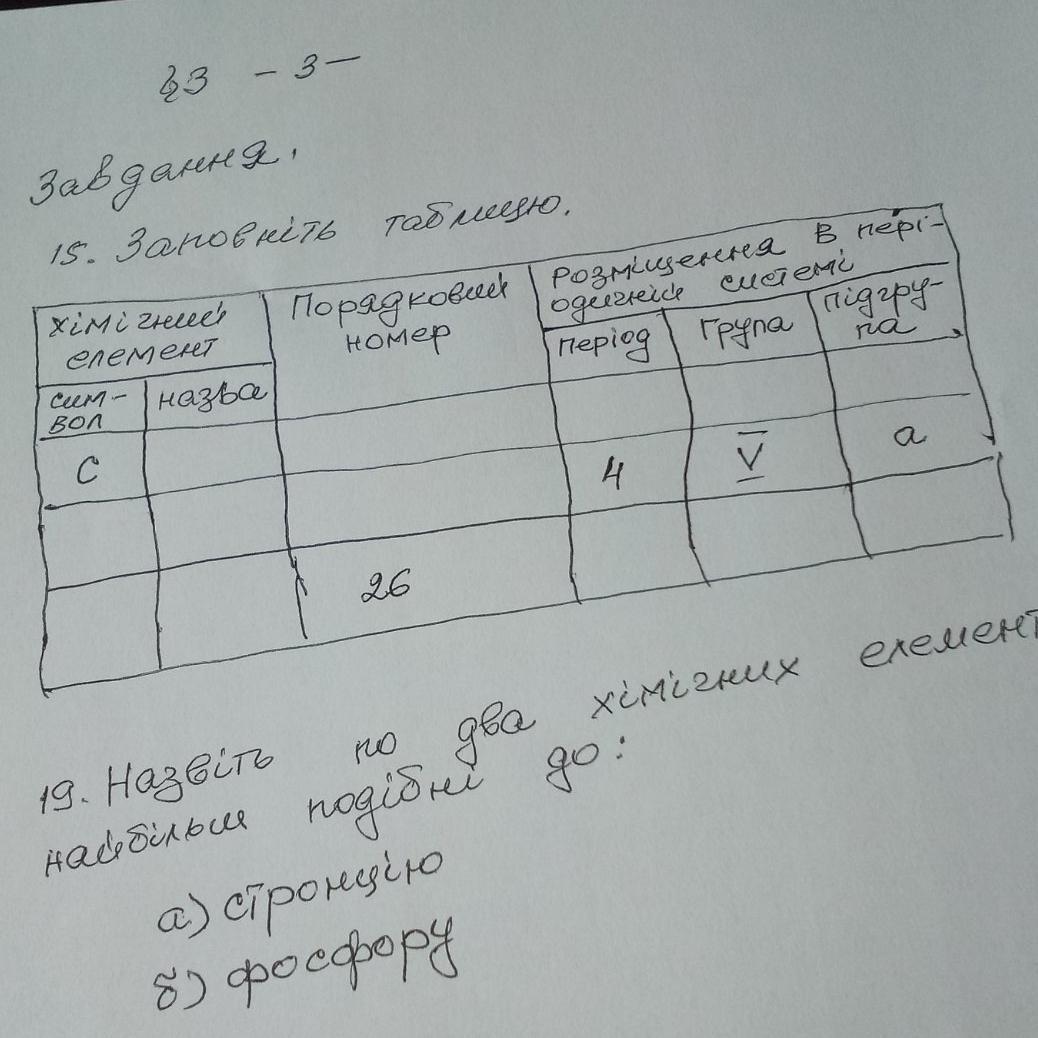 §3 - 3 -
Завдання.
15. Заповніть таблицю.
Хімічний елемент
Порядковий номер
Розміщення в пері-
одичній системі
символ
назва
період
група
підгру-
па
C
4
V
а
26
19. Назвіть по два хімічних елемент
найбільш подібні до:
а) стронцію
б) фосфору